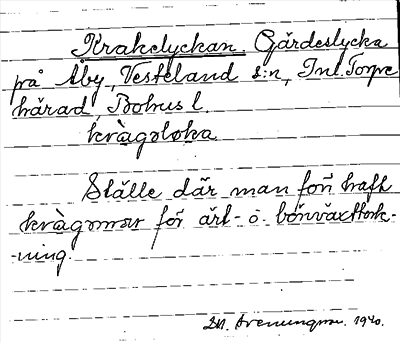 Krakelyckan. Gärdeslycka
på Åby, Vesteland s:n, Inl. Torpe
härad, Bohus l.
kràgøløka
Ställe där man förr haft
kràgømør för ärt- o. bönväxttork-
-ning.
1940.